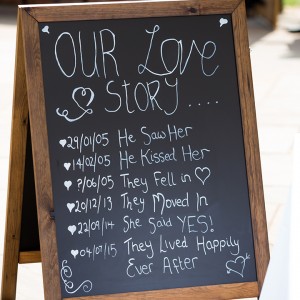 OUR Love
STORY....
29/01/05 He Saw Her
14/02/05 He Kissed Her
?/06/05 They Fell in
20/12/13 They Moved In
22/09/14 She Said YES!
04/07/15 They Lived Happily
Ever After